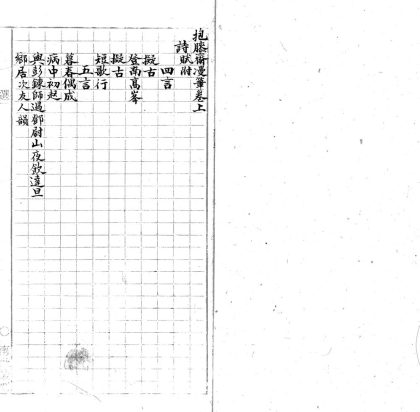 抱膝齋漫筆卷上
詩賦附
四言
擬古
登南高峯
擬古
短歌行
五言
暮春偶成
病中初起
與彭鍊師遇鄧尉山夜飲達旦
鄉居次友人韻